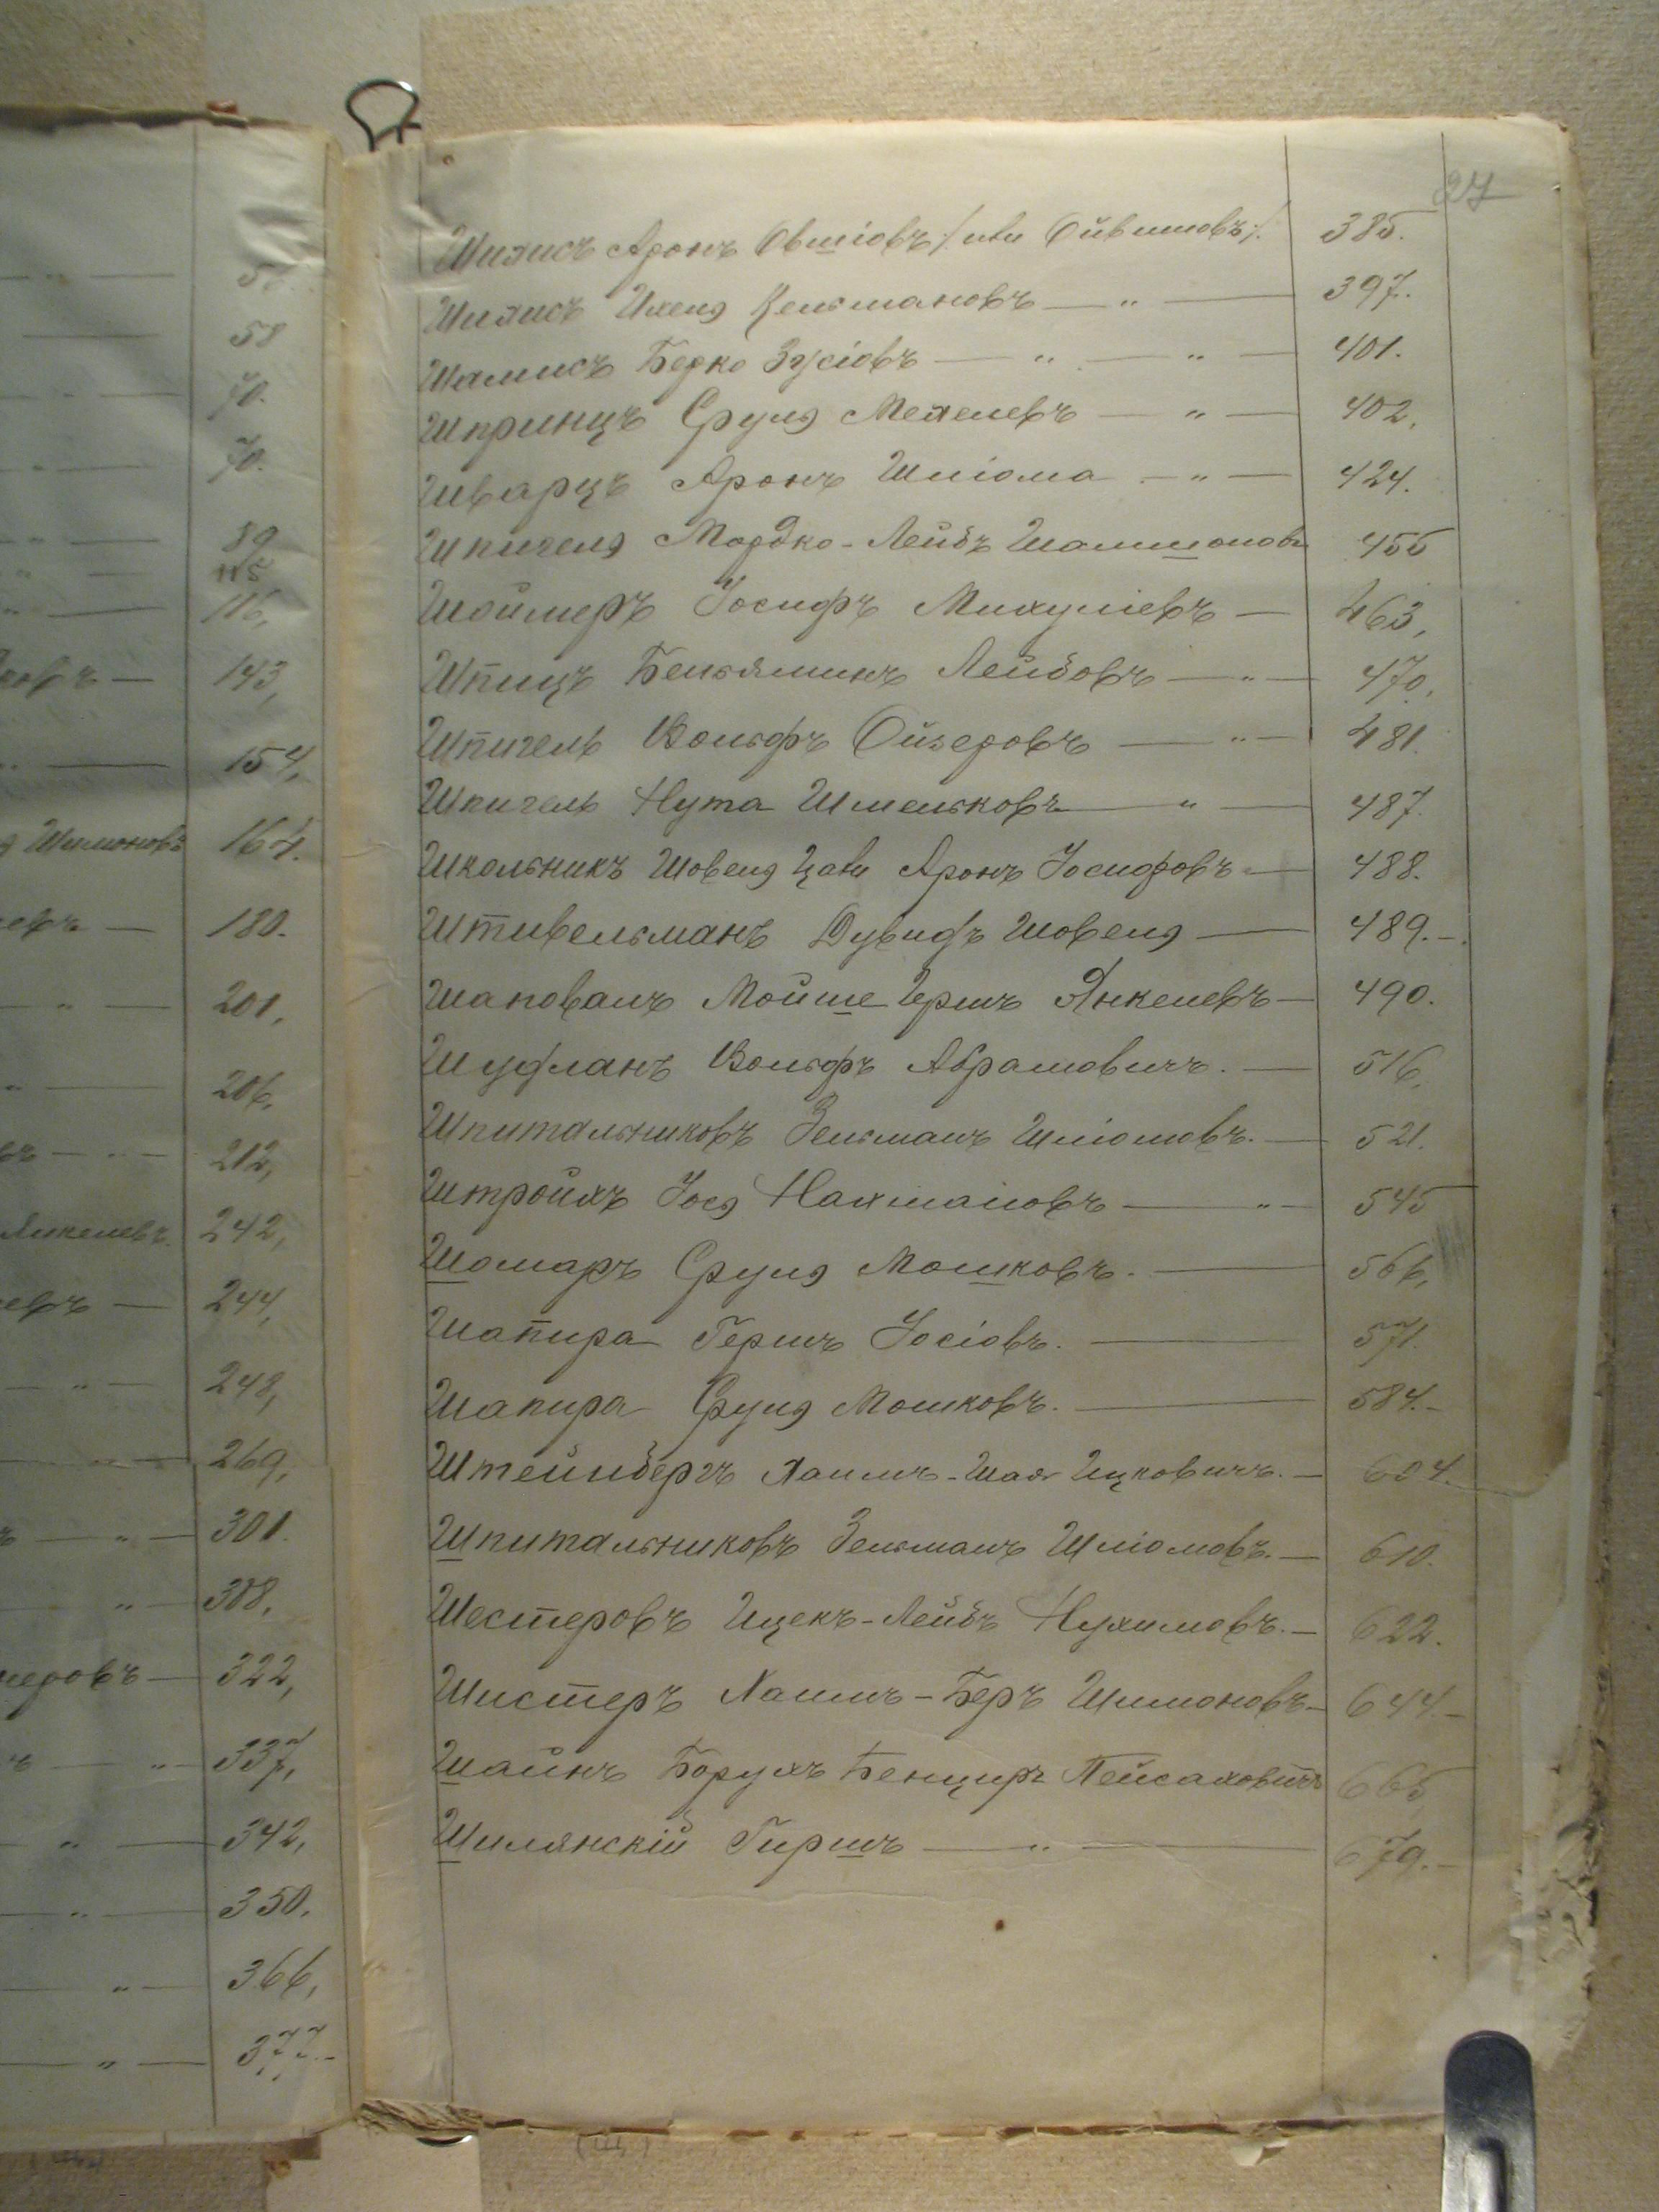 27
Шилисъ Аронъ Овшіовъ /: или Ойвишовъ :/ 385.
Шилисъ Ихеля Цельмановъ — „ — 397.
Шамисъ Берко Зусіовъ — „ — „ — 401.
Шпринцъ Сруля Мехелевъ — „ — 402,
Шварцъ Аронъ Шліома — „ — 424.
Шпигеля Мордко-Лейбъ Шамшоновъ 455
Шоймеръ Іосифъ Михуліевъ — 463,
Шпицъ Беньяминъ Лейбовъ — „ — 470,
Шпигель Вольфъ Ойзеровъ — „ — 481.
Шпигель Нута Шмельковъ — „ — 487.
Школьникъ Шовеля Цали Аронъ Іосифовъ — 488.
Штивельманъ Дувидъ Шовеля — 489.—
Шаповалъ Мойше Гершъ Янкелевъ — 490.
Шуфланъ Вольфъ Абрамовичъ. — 516,
Шпитальниковъ Зельманъ Шліомовъ. — 521.
Штройхъ Іося Нахмановъ — „ — 545
Шомаръ Сруля Мошковъ. — 566,
Шапира Гершъ Іосіовъ. — 571.
Шапира Сруля Мошковъ. — 584.—
Штейнбергъ Хаимъ-Шая Ицковичъ. — 604.
Шпитальниковъ Зельманъ Шліомовъ. — 610.
Шестеровъ Ицекъ-Лейбъ Нухимовъ. — 622.
Шистеръ Хаимъ-Беръ Шимоновъ — 644.—
Шайнъ Борухъ Бенциръ Пейсаховичъ 665
Шилянскій Гиршъ — „ — 679.—
58
70.
70.
89
115
116,
143,
154,
Шимоновъ 164.
180.
201,
206,
212,
Янкелевъ. 242,
244,
248,
269,
301.
308,
322,
337,
342,
350,
366,
377.—